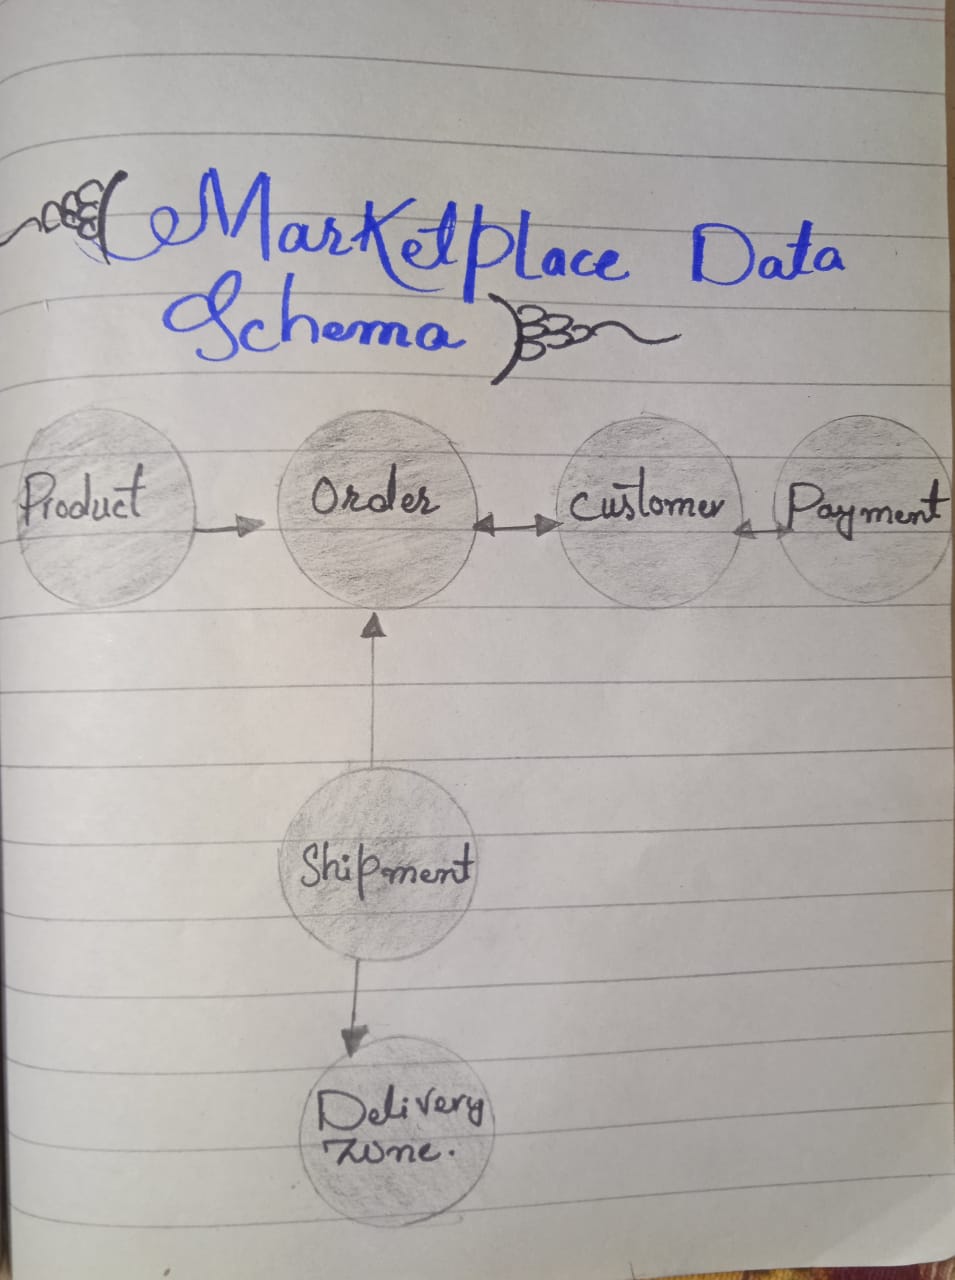 Marketplace Data
Schema
Product
Order
Customer
Payment
Shipment
Delivery
Zone.